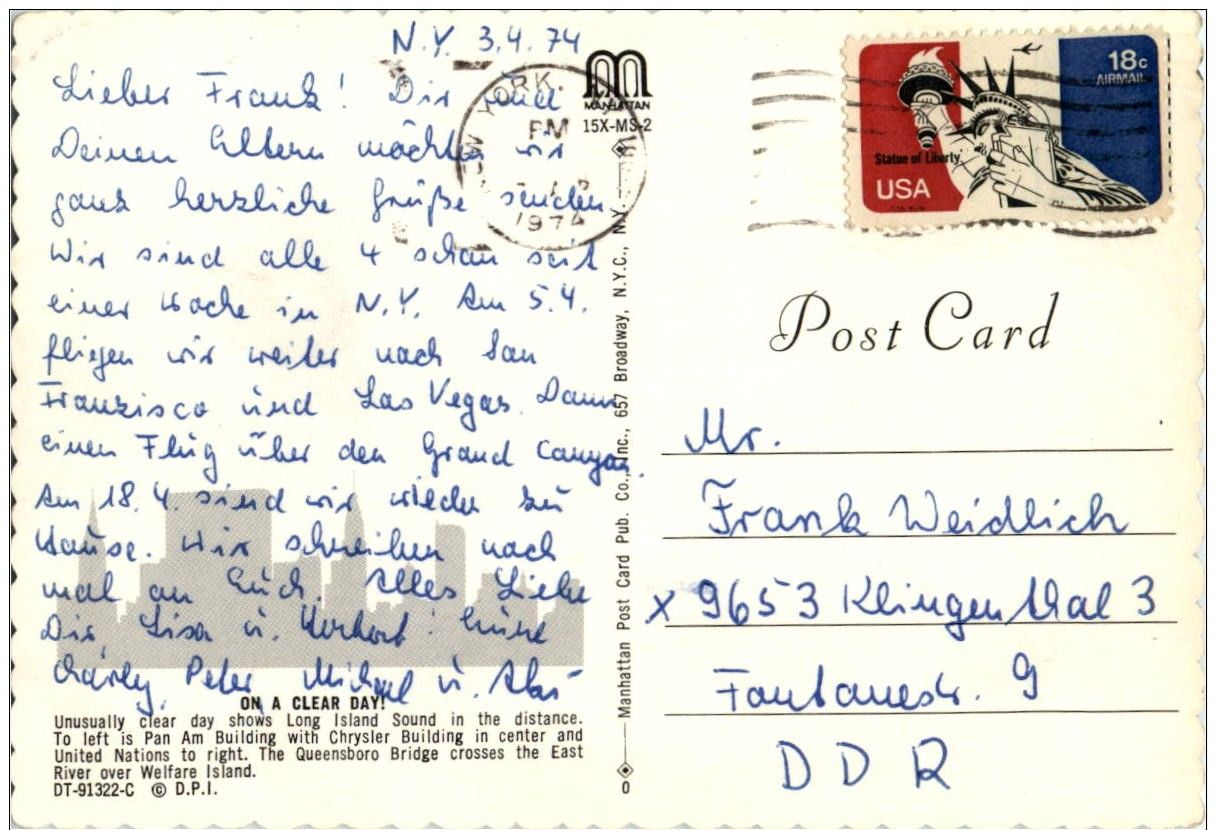 N.Y. 3.4.74
Lieber Frank! Dir und
Deinen Eltern möchten wir
ganz herzliche Grüße senden.
Wir sind alle 4 schon seit
einer Woche in N.Y. Am 5.4.
fliegen wir weiter nach San
Franzisco und Las Vegas. Dann
einen Flug über den Grand Canyon.
Am 18.4. sind wir wieder zu
Hause. Wir schreiben noch
mal an Euch. Alles Liebe
Dir Lisa u. Herbert! Eure
Charly, Peter Michael u.
ON A CLEAR DAY!
Unusually clear day shows Long Island Sound in the distance.
To left is Pan Am Building with Chrysler Building in center and
United Nations to right. The Queensboro Bridge crosses the East
River over Welfare Island.
DT-91322-C © D.P.I.
MANHATTAN
15X-MS-2
Manhattan Post Card Pub. Co., Inc., 657 Broadway, N.Y.C., N.Y.
0
NEW YORK, N.Y.
PM
1974
18c
AIRMAIL
Statue of Liberty
USA
Post Card
Mr.
Frank Weidlich
x 9653 Klingenthal 3
Fontanestr. 9
DDR